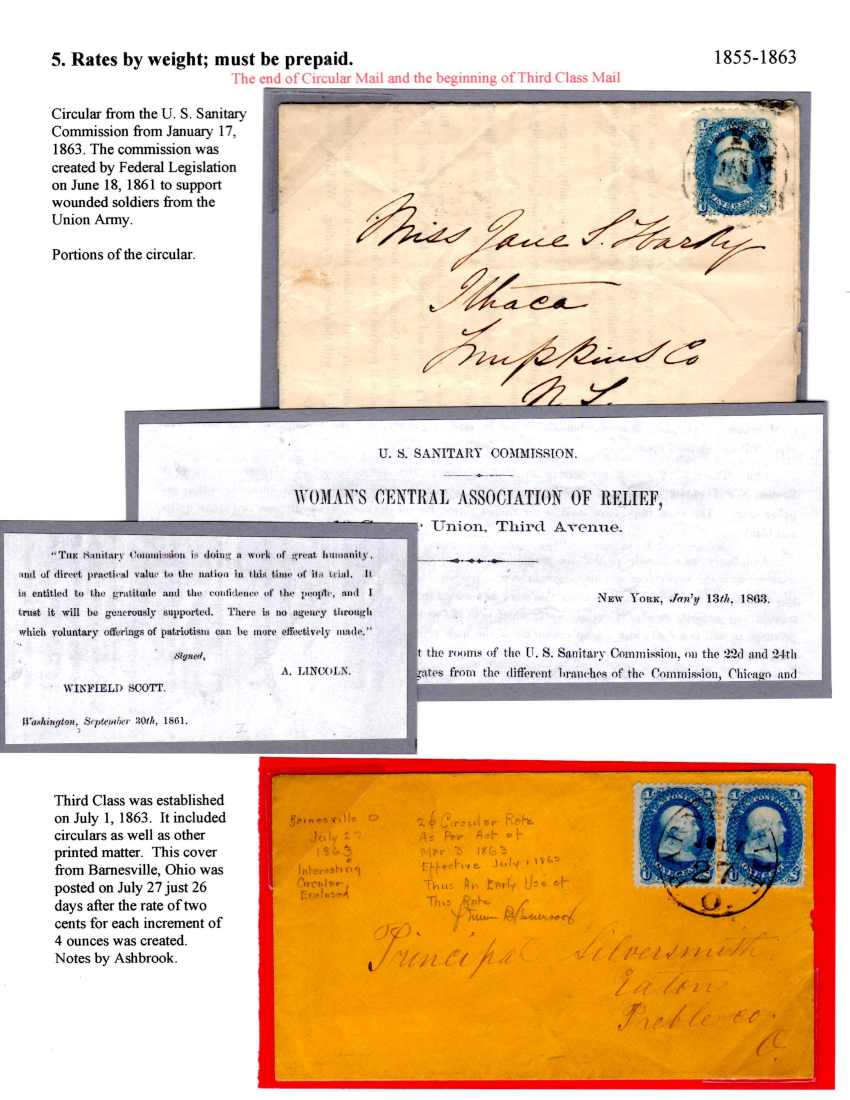 5. Rates by weight; must be prepaid.
1855-1863
The end of Circular Mail and the beginning of Third Class Mail
Circular from the U. S. Sanitary
Commission from January 17,
1863. The commission was
created by Federal Legislation
on June 18, 1861 to support
wounded soldiers from the
Union Army.
Portions of the circular.
Miss Jane S. Hardy
Ithaca
Tmpkins Co
N.Y.
U. S. SANITARY COMMISSION.
WOMAN'S CENTRAL ASSOCIATION OF RELIEF,
Union, Third Avenue.
NEW YORK, Jan'y 13th, 1863.
t the rooms of the U. S. Sanitary Commission, on the 22d and 24th
gates from the different branches of the Commission, Chicago and
"THE Sanitary Commission is doing a work of great humanity,
and of direct practical value to the nation in this time of its trial. It
is entitled to the gratitude and the confidence of the people, and I
trust it will be generously supported. There is no agency through
which voluntary offerings of patriotism can be more effectively made."
Signed,
A. LINCOLN.
WINFIELD SCOTT.
Washington, September 30th, 1861.
Third Class was established
on July 1, 1863. It included
circulars as well as other
printed matter. This cover
from Barnesville, Ohio was
posted on July 27 just 26
days after the rate of two
cents for each increment of
4 ounces was created.
Notes by Ashbrook.
Barnesville O
July 27
1863
Interesting
Circular
Enclosed
2¢ Circular Rate
As Per Act of
Mar 3 1863
Effective July 1 1863
Thus An Early Use of
This Rate
27
O.
Principal Silversmith
Eaton
Preble co.
O.